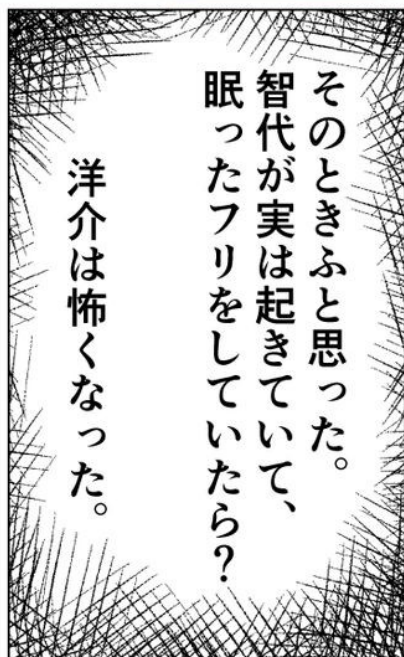 そのときふと思った。
智代が実は起きていて、
眠ったフリをしていたら？
洋介は怖くなった。